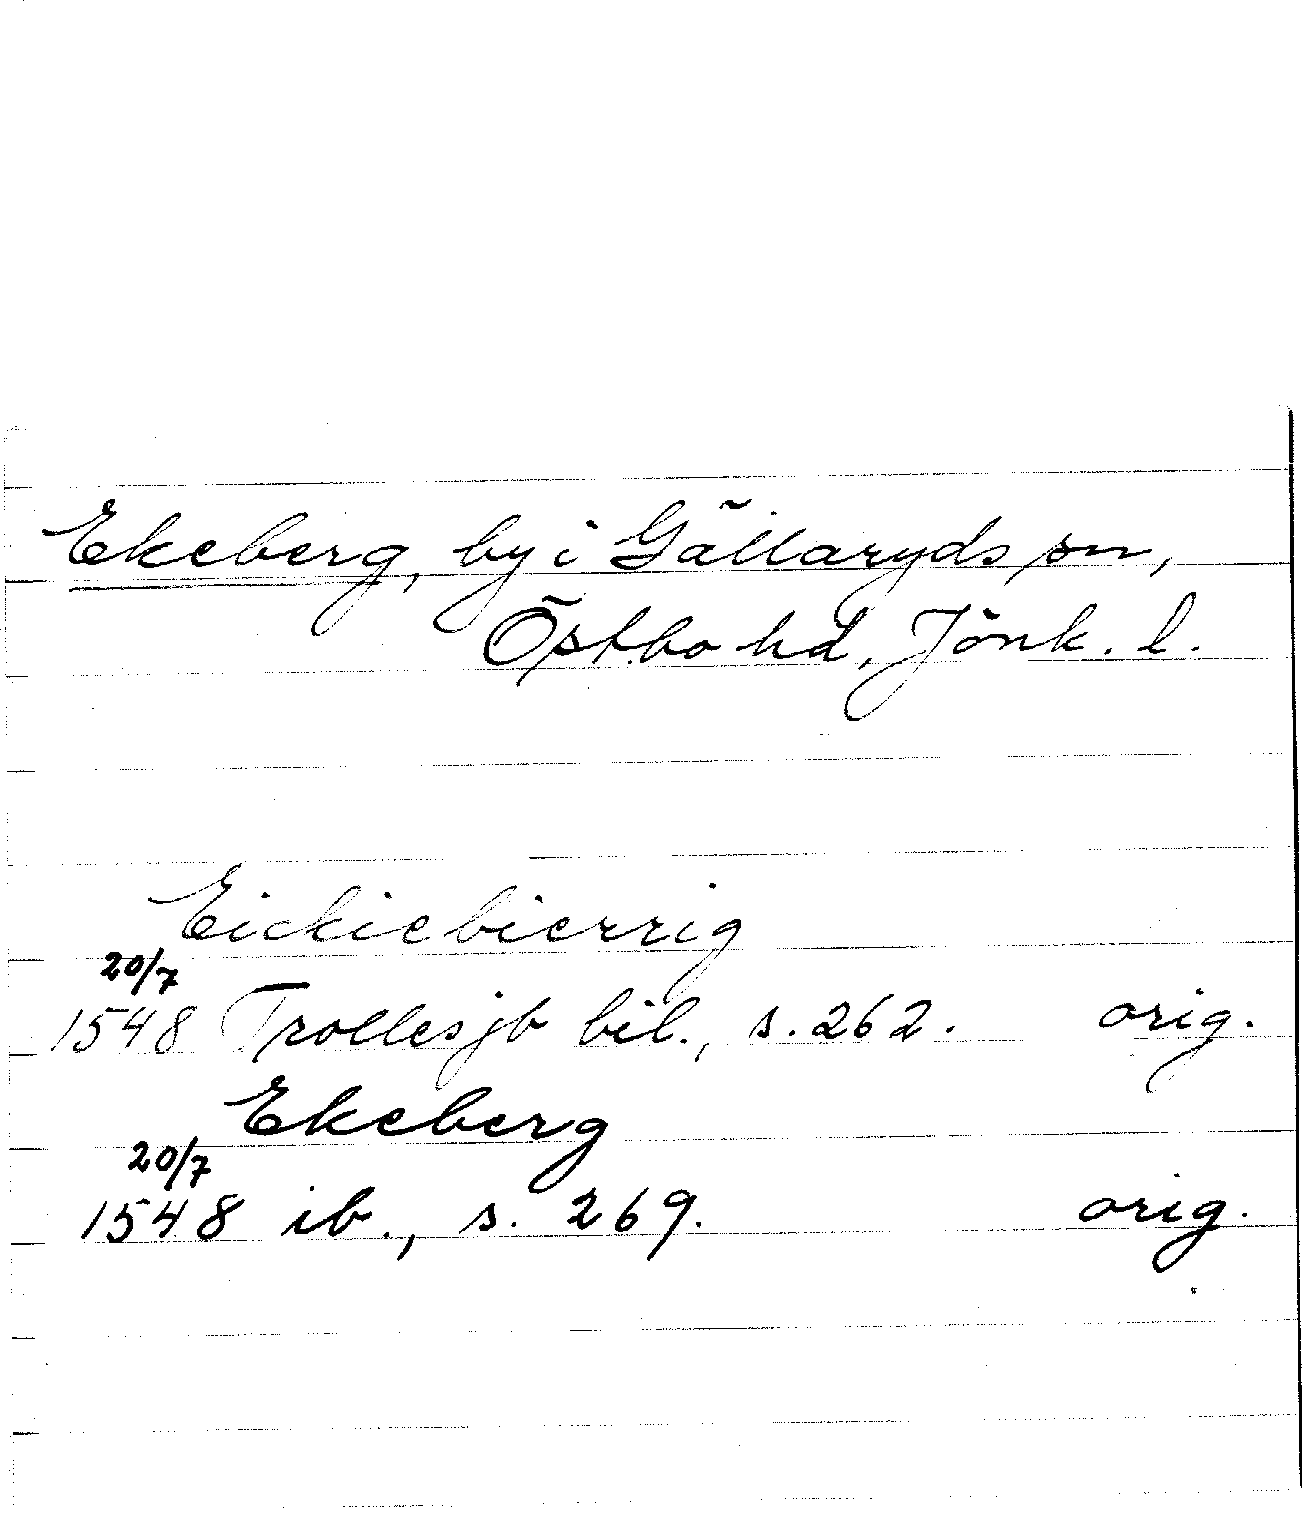 Ekeberg, by i Gällaryds sn,
Östbo hd, Jönk. l.
Eickiebierrig
20/7
1548 Trollesjb bil., s. 262. orig.
Ekeberg
20/7
1548 ib., s. 269. orig.